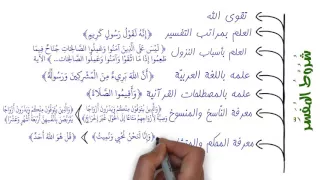 شروط المفسر
تقوى الله
العلم بمراتب التفسير ﴿إِنَّهُ لَقَوْلُ رَسُولٍ كَرِيمٍ﴾
العلم بأسباب النزول ﴿لَيْسَ عَلَى الَّذِينَ آمَنُوا وَعَمِلُوا الصَّالِحَاتِ جُنَاحٌ فِيمَا
طَعِمُوا إِذَا مَا اتَّقَوْا وَآمَنُوا وَعَمِلُوا الصَّالِحَاتِ...﴾ الآية
علمه باللغة العربية ﴿أَنَّ اللَّهَ بَرِيءٌ مِنَ الْمُشْرِكِينَ وَرَسُولُهُ﴾
علمه بالمصطلحات القرآنية ﴿وَأَقِيمُوا الصَّلَاةَ﴾
معرفة الناسخ والمنسوخ ﴿وَالَّذِينَ يُتَوَفَّوْنَ مِنْكُمْ وَيَذَرُونَ أَزْوَاجًا
معرفة المحكم ﴿وَإِنَّا لَنَحْنُ نُحْيِي وَنُمِيتُ﴾ ﴿قُلْ هُوَ اللَّهُ أَحَدٌ﴾